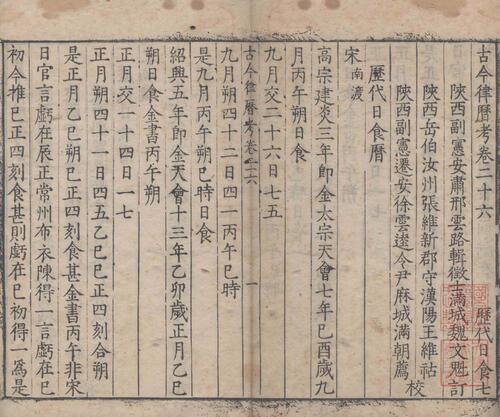 古今律曆考卷二十六 歷代日食七
陝西副憲安肅邢雲路輯徵士滿城魏文魁訂
陝西岳伯汝州張維新郡守漢陽王維祜
陝西副憲遷安徐雲逵令尹麻城滿朝薦校
歷代日食曆
宋南渡
高宗建炎三年即金太宗天會七年己酉歲九
月丙午朔日食
九月交二十六日七五
古今律曆考卷二十六 一
九月朔四十二日四一丙午巳時
是九月丙午朔巳時日食
紹興五年即金天會十三年乙卯歲正月乙巳
朔日食金書丙午朔
正月交一十四日一七
正月朔四十一日四五乙巳巳正四刻合朔
是正月乙巳朔巳正四刻食甚金書丙午非宋
日官言虧在辰正常州布衣陳得一言虧在巳
初今推巳正四刻食甚則虧在巳初得一為是